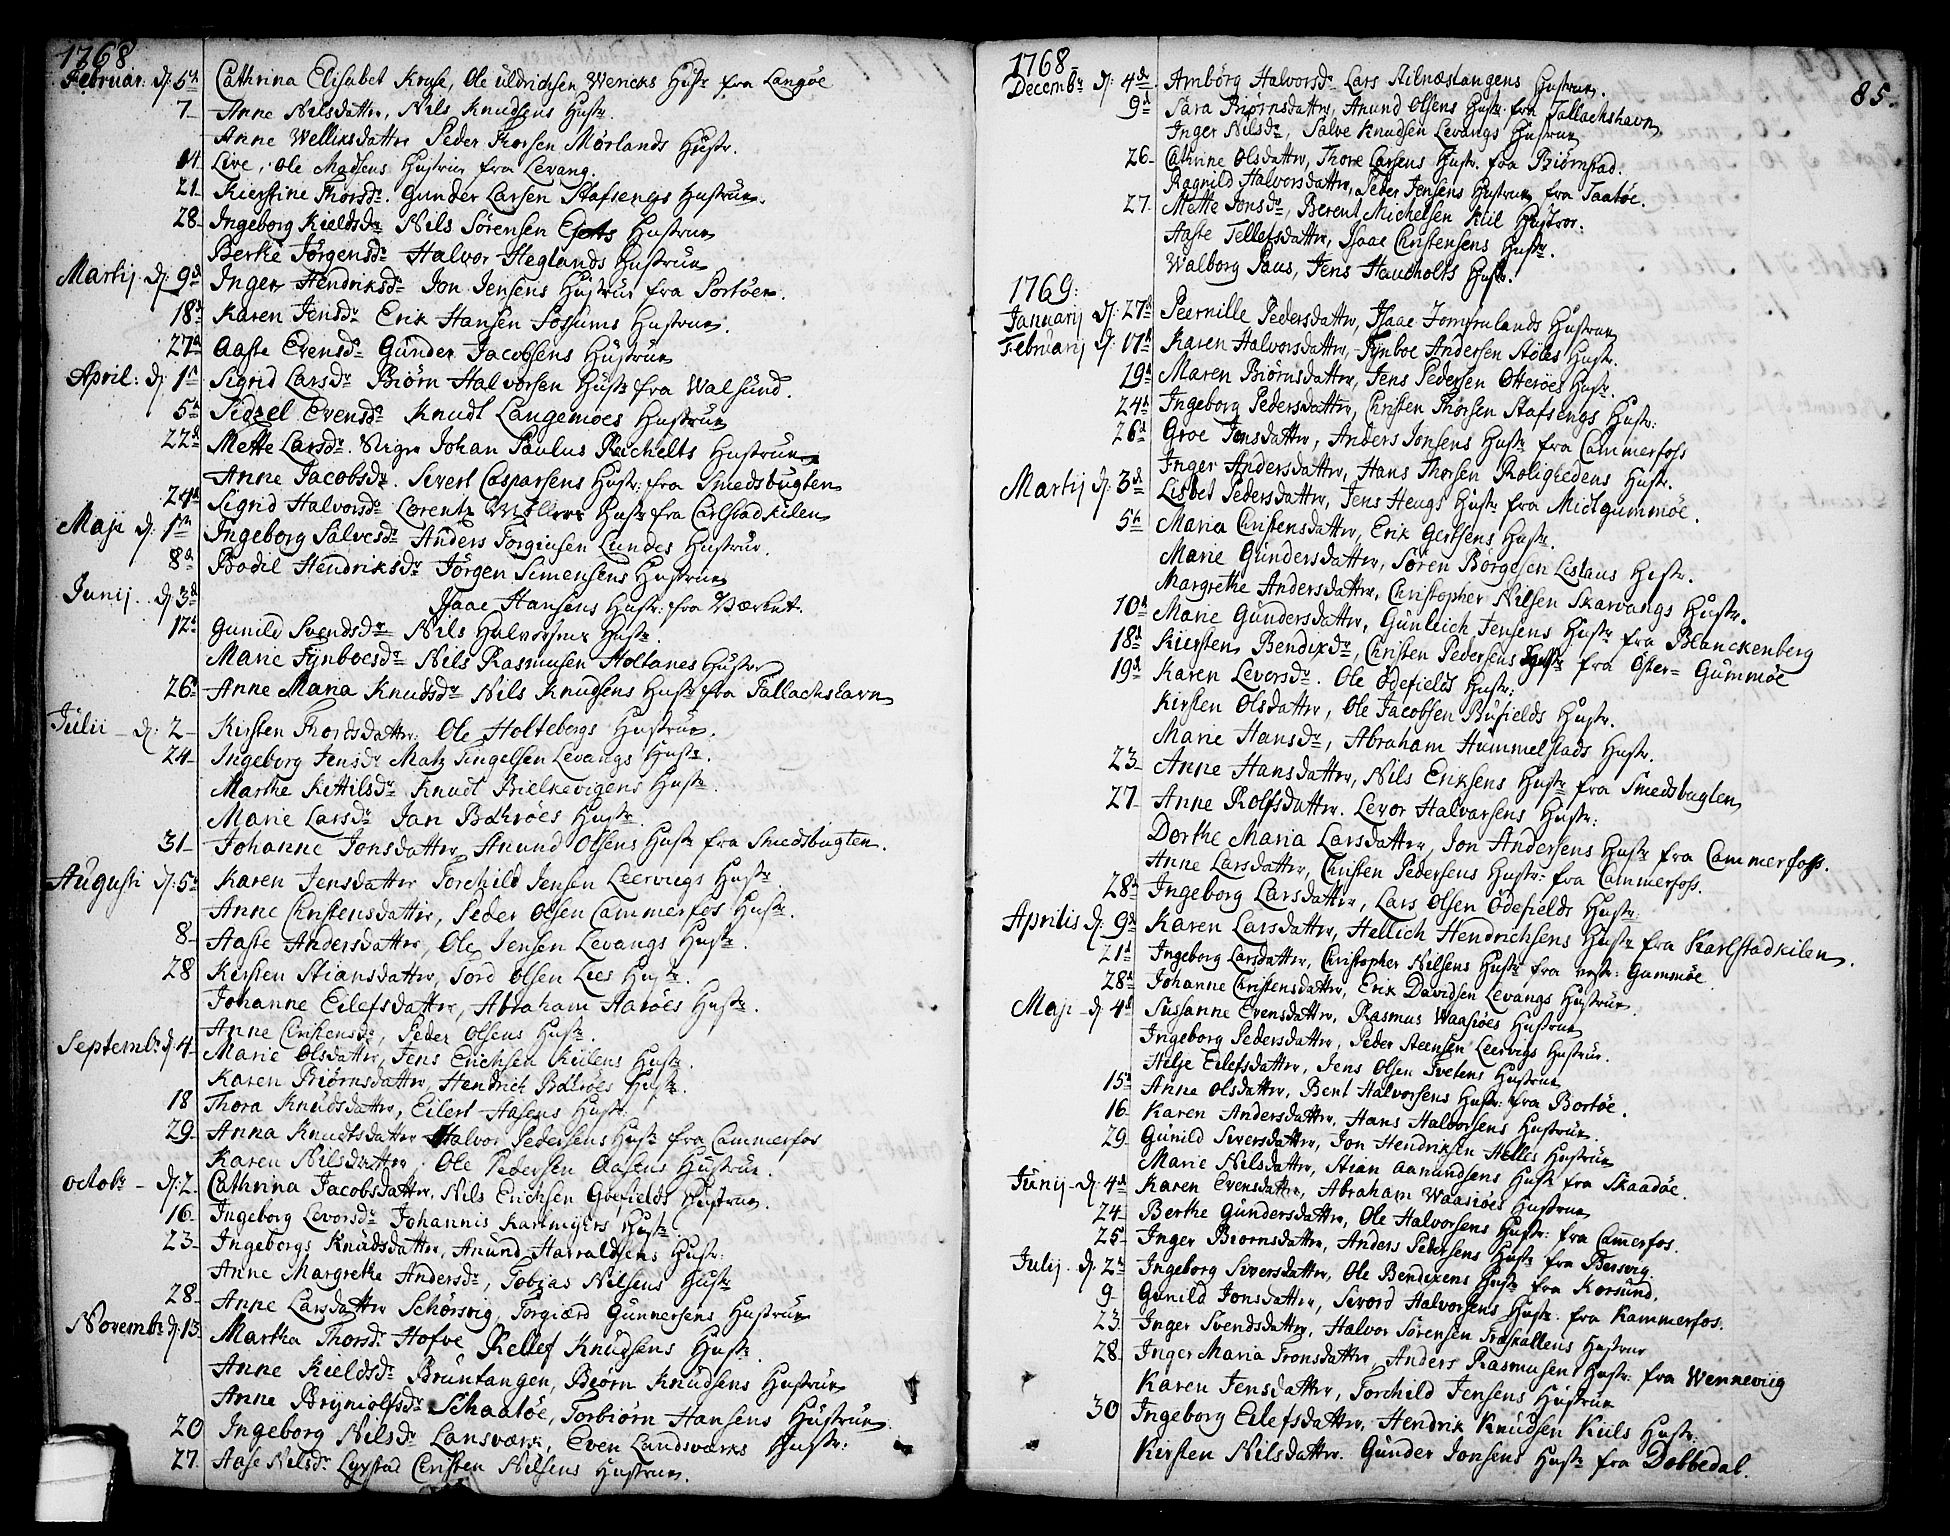 1768
Februar. d: 5te Cathrina Elisabet Kruse, Ole Uldrichsen Wericks Hustr fra Langøe
7 Anne Nilsdatter, Nils Knudsens Hustr.
Anne Wellixdatter Peder Thorsen Mørlands Hustr.
11. Live, Ole Madsens Hustrue fra Levang.
21 Kierstine Thorsdr. Gunder Larsen Stafsengs Hustrue.
28 Ingeborg Kieldsdr Nils Sørensen Hustrue
Berthe Jørgensdr Halvor Heglands Hustrue
Martij d: 9d Inger Hendriksdr Jon Jensens Hustrue fra Portøen.
18d Karen Jensdr Erik Hansen Fossums Hustrue.
27d Aaste Evensdr Gunder Jacobsens Hustrue
April: d: 1d Sigrid Larsdr Biørn Halvorsen Hustr fra Walsund.
5t Sidzel Evensdr Knudt Langemoes Hustrue
22d Mette Larsdr. Sergr Johan Paulus Rachelts Hustrue
Anne Jacobsdr. Sivert Casparsens Hustr: fra Smedsbugten
24d Sigrid Halvorsdr Lorentz Møllers Hustr fra Carlstadkilen
Maji d: 1te Ingeborg Salvesdr Anders Torgiusen Lundes Hustrue.
8d Bodil Hendriksdr Jørgen Simensens Hustrue
Junij d: 3d Isaac Hansens Hustr: fra Værket.
12t Gunild Svendsdr Nils Halvorsens Hustr.
Marie Fynboesdr Nils Rasmusen Holtanes Hustr
26t Anne Maria Knudsdr Nils Knudsens Hustr fra Tallachshavn
Julii d: 2 Kirsten Thordsdatter: Ole Holtebergs Hustrue.
24 Ingeborg Jensdr Matz Tingelsen Levangs Hustr.
Marthe Kittilsdr Knudt Bielkevigens Hustr.
Marie Larsdr Jan Bøhrøes Hustr
31 Johanne Jonsdatter, Anund Olsens Hustr fra Smedsbugten.
Augusti d: 5t Karen Jensdatter Torchild Jensen Leervigs Hustr.
Anne Christensdatter, Peder Olsen Cammerfos Hustr.
8 Aaste Andersdatter, Ole Jensen Levangs Hustr.
28 Kirsten Stiansdatter, Tord Olsen Lees Hustr.
Johanne Eilefsdatter, Abraham Aarøes Hustr.
Anne Christensdr, Peder Olsens Hustr.
Septembr d: 4 Marie Olsdatter, Jens Erichsen Kiilens Hustr.
Karen Biørnsdatter, Hendrich Bøhrøes Hustr.
18 Thora Knudsdatter, Eilert Aasens Hustr.
29 Anna Knudtsdatter Halvor Pedersens Hustr fra Cammerfos
Karen Nilsdatter, Ole Pedersen Aasens Hustrue.
Octobr d: 2. Cathrina Jacobsdatter, Nils Erichsen Grefields Hustrue.
16 Ingeborg Levorsdr Johannis Karlmyhrs Hustr
23 Ingeborg Knudsdatter, Anund Harraldsens Hustr:
Anne Margrethe Andersdr, Tobias Nilsens Hustr
28 Anne Larsdatter Schørsvig, Torgierd Gunnersens Hustrue
Novembr d: 13 Martha Thorsdr Hofve Kellef Knudsens Hustr.
Anne Kieldsdr Bruntangen, Biørn Knudsens Hustrue
Anne Bryniolfsdr Schaatøe, Torbiørn Hansens Hustrue
20 Ingeborg Nilsdr Lansværk, Even Landsværks Hustr:
27. Aase Nilsdr Lyrstad Christen Nilsens Hustrue.
1768
85.
Decembr d: 4de Amborg Halvorsdr Lars Stilnæstangens Hustrue.
9d Sara Biørnsdatter, Anund Olsens Hustr: fra Tallachshavn
Inger Nilsdr, Salve Knudsen Levangs Hustrue
26 Cathrine Olsdatter, Thore Larsens Hustr. fra Biørnstad.
Ragnild Halvorsdatter, Peder Jensens Hustrue fra Taatøe.
27 Mette Jonsdr, Berent Michelsen Kiil Hustror:
Aaste Tellefsdatter, Isaac Christensens Hustr.
Walborg Paus, Jens Haudholts Hustr.
1769:
Januarij d: 27d Peernille Pedersdatter, Isaac Tommelands Hustrue
Februarij d: 17d Karen Halvorsdatter, Fynboe Andersen Støles Hustr.
19d Maren Biørnsdatter, Jens Pedersen Otterøes Hustr.
24d Ingeborg Pedersdatter, Christen Thorsen Stafsengs Hustr:
26d Groe Jensdatter, Anders Jonsens Hustr fra Cammerfoss
Inger Andersdatter, Hans Thorsen Rolighedens Hustr.
Martij d: 3d Lisbet Pedersdatter, Jens Heugs Hustr fra Midtgummøe.
5te Maria Christensdatter, Erik Gertsens Hustr.
Marie Gundersdatter, Søren Børgesen Listaus Hustr.
Margrethe Andersdatter, Christopher Nilsen Skarvangs Hustr.
10d Marie Gundersdatter, Gunleich Jensens Hustr fra Blanckenberg
18d Kiersten Bendixdr, Christen Pedersens Hustr fra Øster= Gummøe
19d Karen Levorsdr. Ole Ødefields Hustr:
Kirsten Olsdatter, Ole Jacobsen Busields Hustr.
Marie Hansdr, Abraham Hummelstads Hustr.
23 Anne Hansdatter, Nils Eriksens Hustr fra Smedsbugten
27 Anne Rolfsdatter. Levor Halvorsens Hustr:
Dorthe Maria Larsdatter, Jon Andersens Hustr fra Cammerfoss.
Anne Larsdatter, Christen Pedersens Hustr: fra Cammerfoss.
28d Ingeborg Larsdatter, Lars Olsen Ødefields Hustr:
Aprilis d: 9d Karen Larsdatter, Hellich Hendrichsens Hustr fra Karlstadkilen.
21d Ingeborg Larsdatter, Christopher Nilsens Hustr fra vestr: Gummøe
28d Johanne Christensdatter, Erik Davidsen Levangs Hustrue.
Maji d: 4d Susanne Evensdatter, Rasmus Waasiøes Hustrue
Ingeborg Pedersdatter, Peder Steensen Leervigs Hustrue.
Helje Eilefsdatter, Jens Olsen Tvetens Hustrue
15d Anne Olsdatter, Bent Halvorsens Hustr: fra Bortøe.
16 Karen Andersdatter, Hans Halvorsens Hustrue.
29 Gunild Siversdatter, Jon Hendriksen Helles Hustrue
Marie Nilsdatter, Stian Aanundsens Hustr fra Skaadøe.
Junij d: 4d Karen Evensdatter, Abraham Waasiøes Hustrue
24 Berthe Gundersdatter, Ole Halvorsens Hustr: fra Camerfos.
25 Inger Biørnsdatter, Anders Pedersens Hustr fra Bersvig.
Julij d: 2d Ingeborg Siversdatter, Ole Bendixens Hustr fra Korsund.
9 Gunild Jonsdatter, Sivord Halvorsens Hustr: fra Kammerfos.
23 Inger Svendsdatter, Halvor Sørensen Træskallens Hustrue
28. Inger Maria Tronsdatter, Anders Rasmusens Hustr: fra Wenneviig
Karen Jensdatter, Torchild Jensens Hustrue
30 Ingeborg Eilefsdatter, Hendrik Knudsen Kiils Hustr:
Kirsten Nilsdatter. Gunder Jonsens Hustr fra Dobbedal.